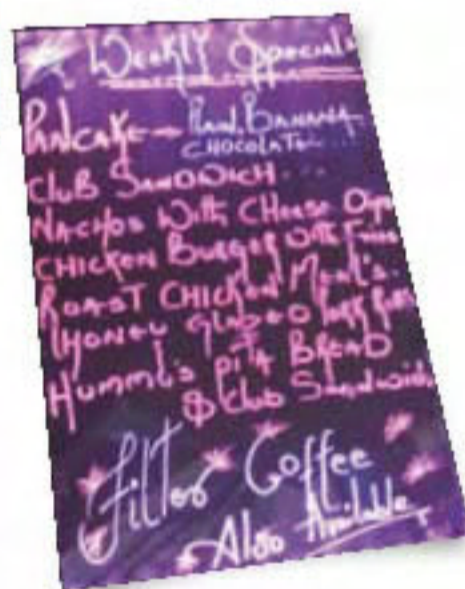 Weekly Specials
PANCAKE - PLAIN, BANANA
CHOCOLATE...
CLUB SANDWICH...
NACHOS WITH CHEESE
CHICKEN BURGER WITH
ROAST CHICKEN
HONEY GLAZED
HUMMUS PITA BREAD
& Club Sandwich
Filter Coffee
Also Available